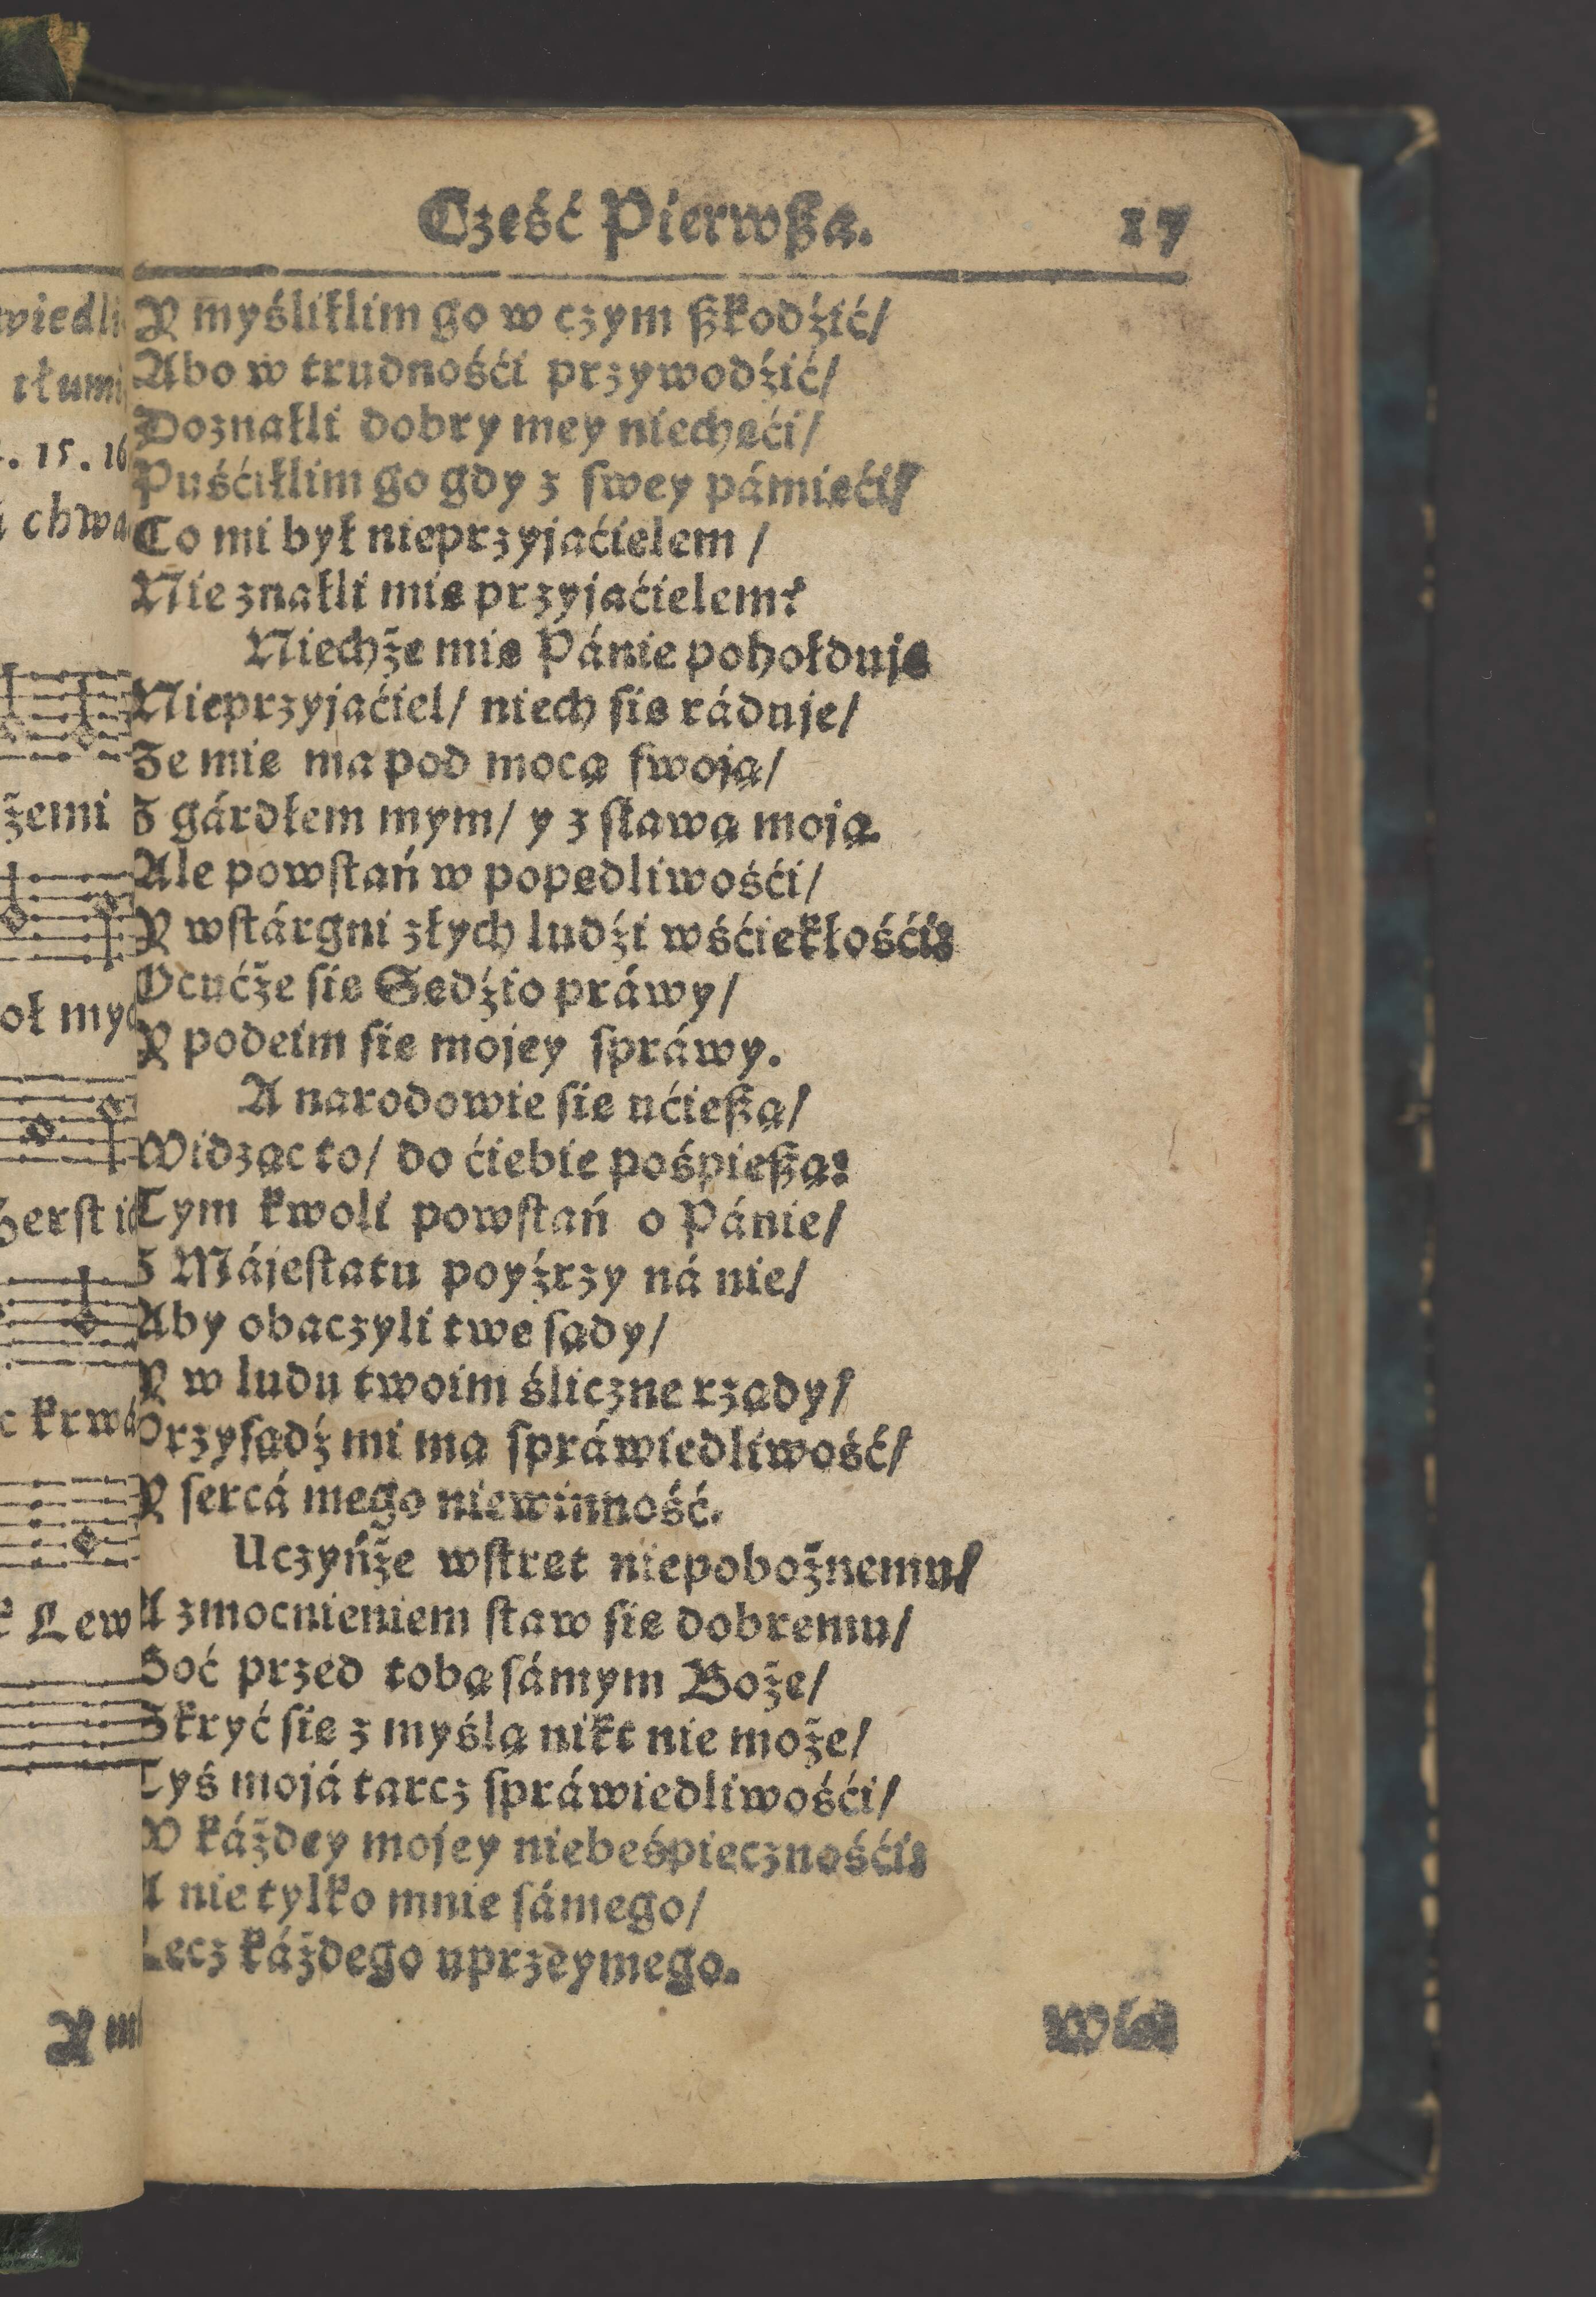 Cześć Pierwßa. 17
Y myśliłlim go w czym ßkodźić/
Abo w trudnośći przywodźić/
Doznałli dobry mey niechęći/
Puśćiłlim go gdy z swey pámięći/
Co mi był nieprzyjaćielem /
Nie znałli mię przyjaćielem?
Niechże mię Pánie pohołduje
Nieprzyjaćiel/ niech się ráduje/
Ze mię ma pod mocą swoją/
Z gárdłem mym/ y z sławą moją.
Ale powstań w popędliwośći/
Y wstárgni złych ludźi wśćiekłośći:
Ocućże się Sędźio práwy/
Y podeim się mojey spráwy.
A narodowie się ućießą/
Widząc to/ do ćiebie pośpießą:
Tym kwoli powstań o Pánie/
Z Májestatu poyźrzy ná nie/
Aby obaczyli twe sądy/
Y w ludu twoim śliczne rządy/
Przysądź mi mą spráwiedliwość/
Y sercá mego niewinność.
Uczyńże wstręt niepobożnemu/
A zmocnieniem staw się dobremu/
Boć przed tobą sámym Boże/
Skryć się z myślą nikt nie może/
Tyś mojá tarcz spráwiedliwośći/
W káżdey mojey niebeśpiecznośći:
A nie tylko mnie sámego/
Lecz káżdego uprzeymego.
wiedli
tłumi
. 15. 16
chwa
żemi
oł myc
zerst
c krwá
Lew
Y mi